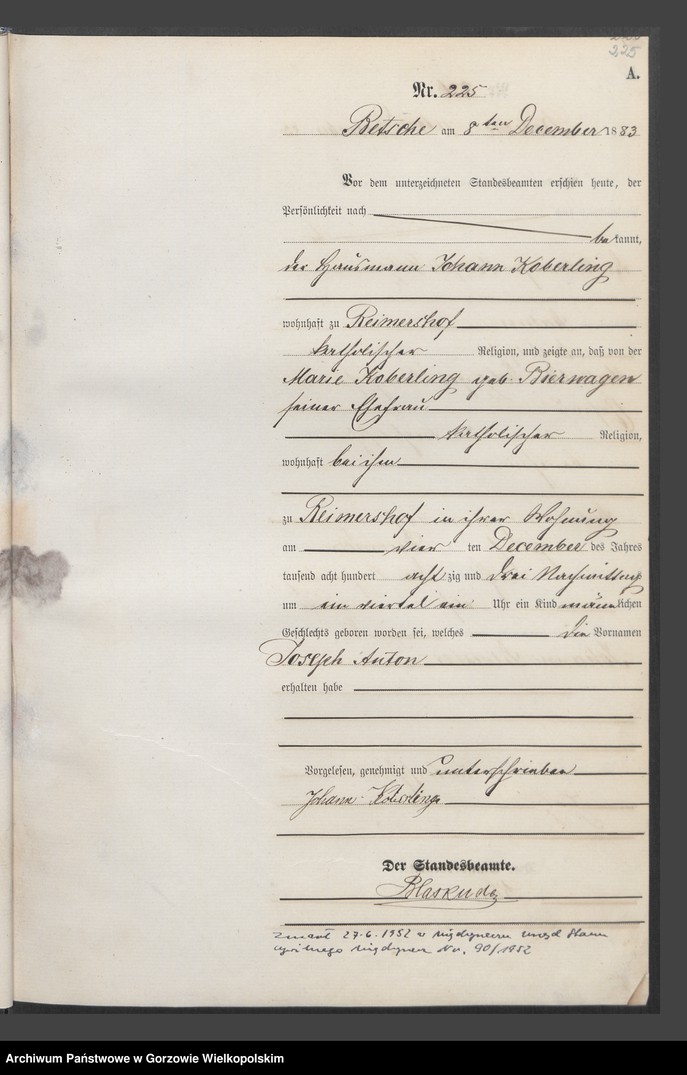 225
A.
Nr. 225
Betsche am 8ten December 1883
Vor dem unterzeichneten Standesbeamten erschien heute, der
Persönlichkeit nach
bekannt,
der Hausmann Johann Koberling
wohnhaft zu Reimershof
katholischer Religion, und zeigte an, daß von der
Marie Koberling geb. Bierwagen
seiner Ehefrau
katholischer Religion,
wohnhaft bei ihm
zu Reimershof in ihrer Wohnung
am vier ten December des Jahres
tausend acht hundert acht zig und drei Nachmittag
um ein viertel ein Uhr ein Kind männlichen
Geschlechts geboren worden sei, welches die Vornamen
Joseph Anton
erhalten habe
Vorgelesen, genehmigt und unterschrieben
Johann Koberling
Der Standesbeamte.
Blaskuda
zmarł 27.6.1952 w Międzyrzeczu urząd stanu
cywilnego Nr. 90/1952
Archiwum Państwowe w Gorzowie Wielkopolskim